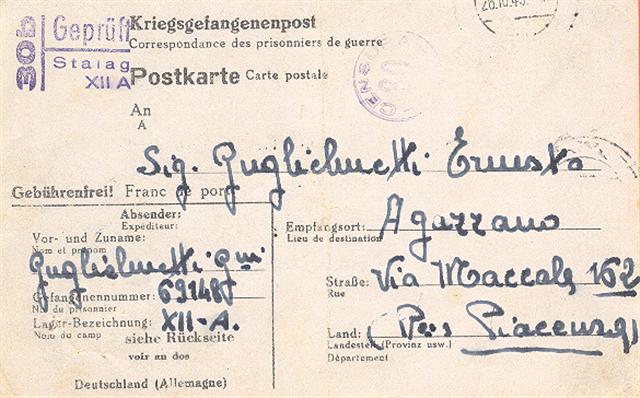 30b Geprüft
Stalag
XII A
26.10.43.
Kriegsgefangenenpost
Correspondance des prisonniers de guerre
Postkarte Carte postale
CENSURA
An
A
Sig. Guglielmetti Ernesto
Gebührenfrei! Franc de port!
Absender:
Expéditeur:
Vor- und Zuname:
Nom et prénom
Guglielmetti
Gefangenennummer: 69148
No du prisonnier
Lager-Bezeichnung: XII-A.
Nom du camp
siehe Rückseite
voir au dos
Deutschland (Allemagne)
Empfangsort: Agazzano
Lieu de destination
Straße: Via Maccalè 162
Rue
Land: (Per Piacenza)
Landesteil (Provinz usw.)
Département